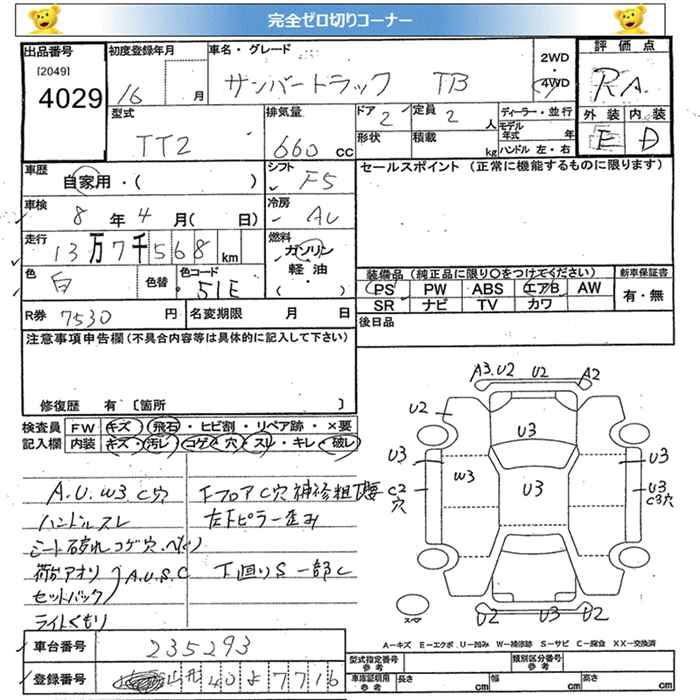 完全ゼロ切りコーナー
出品番号
[2049]
4029
初度登録年月
16 月
車名・グレード
サンバートラック TB
2WD
・
4WD
評価点
RA
外装 内装
E D
型式
TT2
排気量
660 cc
ドア 2
定員 2 人
形状
積載 kg
ディーラー・並行
モデル年式 年
ハンドル 左・右
車歴
自家用・( )
シフト
F5
セールスポイント (正常に機能するものに限ります)
車検
8 年 4 月 ( 日)
冷房
AC
走行
13万7千568 km
燃料
ガソリン
軽油
( )
色
白
色替
色コード
51E
装備品 (純正品に限り〇をつけてください)
PS PW ABS エアB AW
SR ナビ TV カワ
新車保証書
有・無
R券 7530 円
名変期限 月 日
後日品
注意事項申告欄 (不具合内容等は具体的に記入して下さい)
修復歴 有 〔箇所
検査員 FW キズ・飛石・ヒビ割・リペア跡・×要
記入欄 内装 キズ・汚レ・コゲ・穴・スレ・キレ・破レ
A.U.W3 C穴
ハンドルスレ
シート破れ コゲ穴
荷台アオリ A.U.S.C
セットバック
ライトくもり
下フロアC穴 補修粗
左下ピラー歪み
下廻りS 一部C
A3.U2 U2 A2
U2
U3
U3 U3
W3
C2穴
U3
U3
C3穴
スペア
U2 U3 U2
A-キズ E-エクボ U-凹み W-補修跡 S-サビ C-腐食 XX-交換済
車台番号
235293
登録番号
40 よ 7716
型式指定番号
参考
類別区分番号
参考
車庫証明用
参考
長さ cm
幅 cm
高さ cm